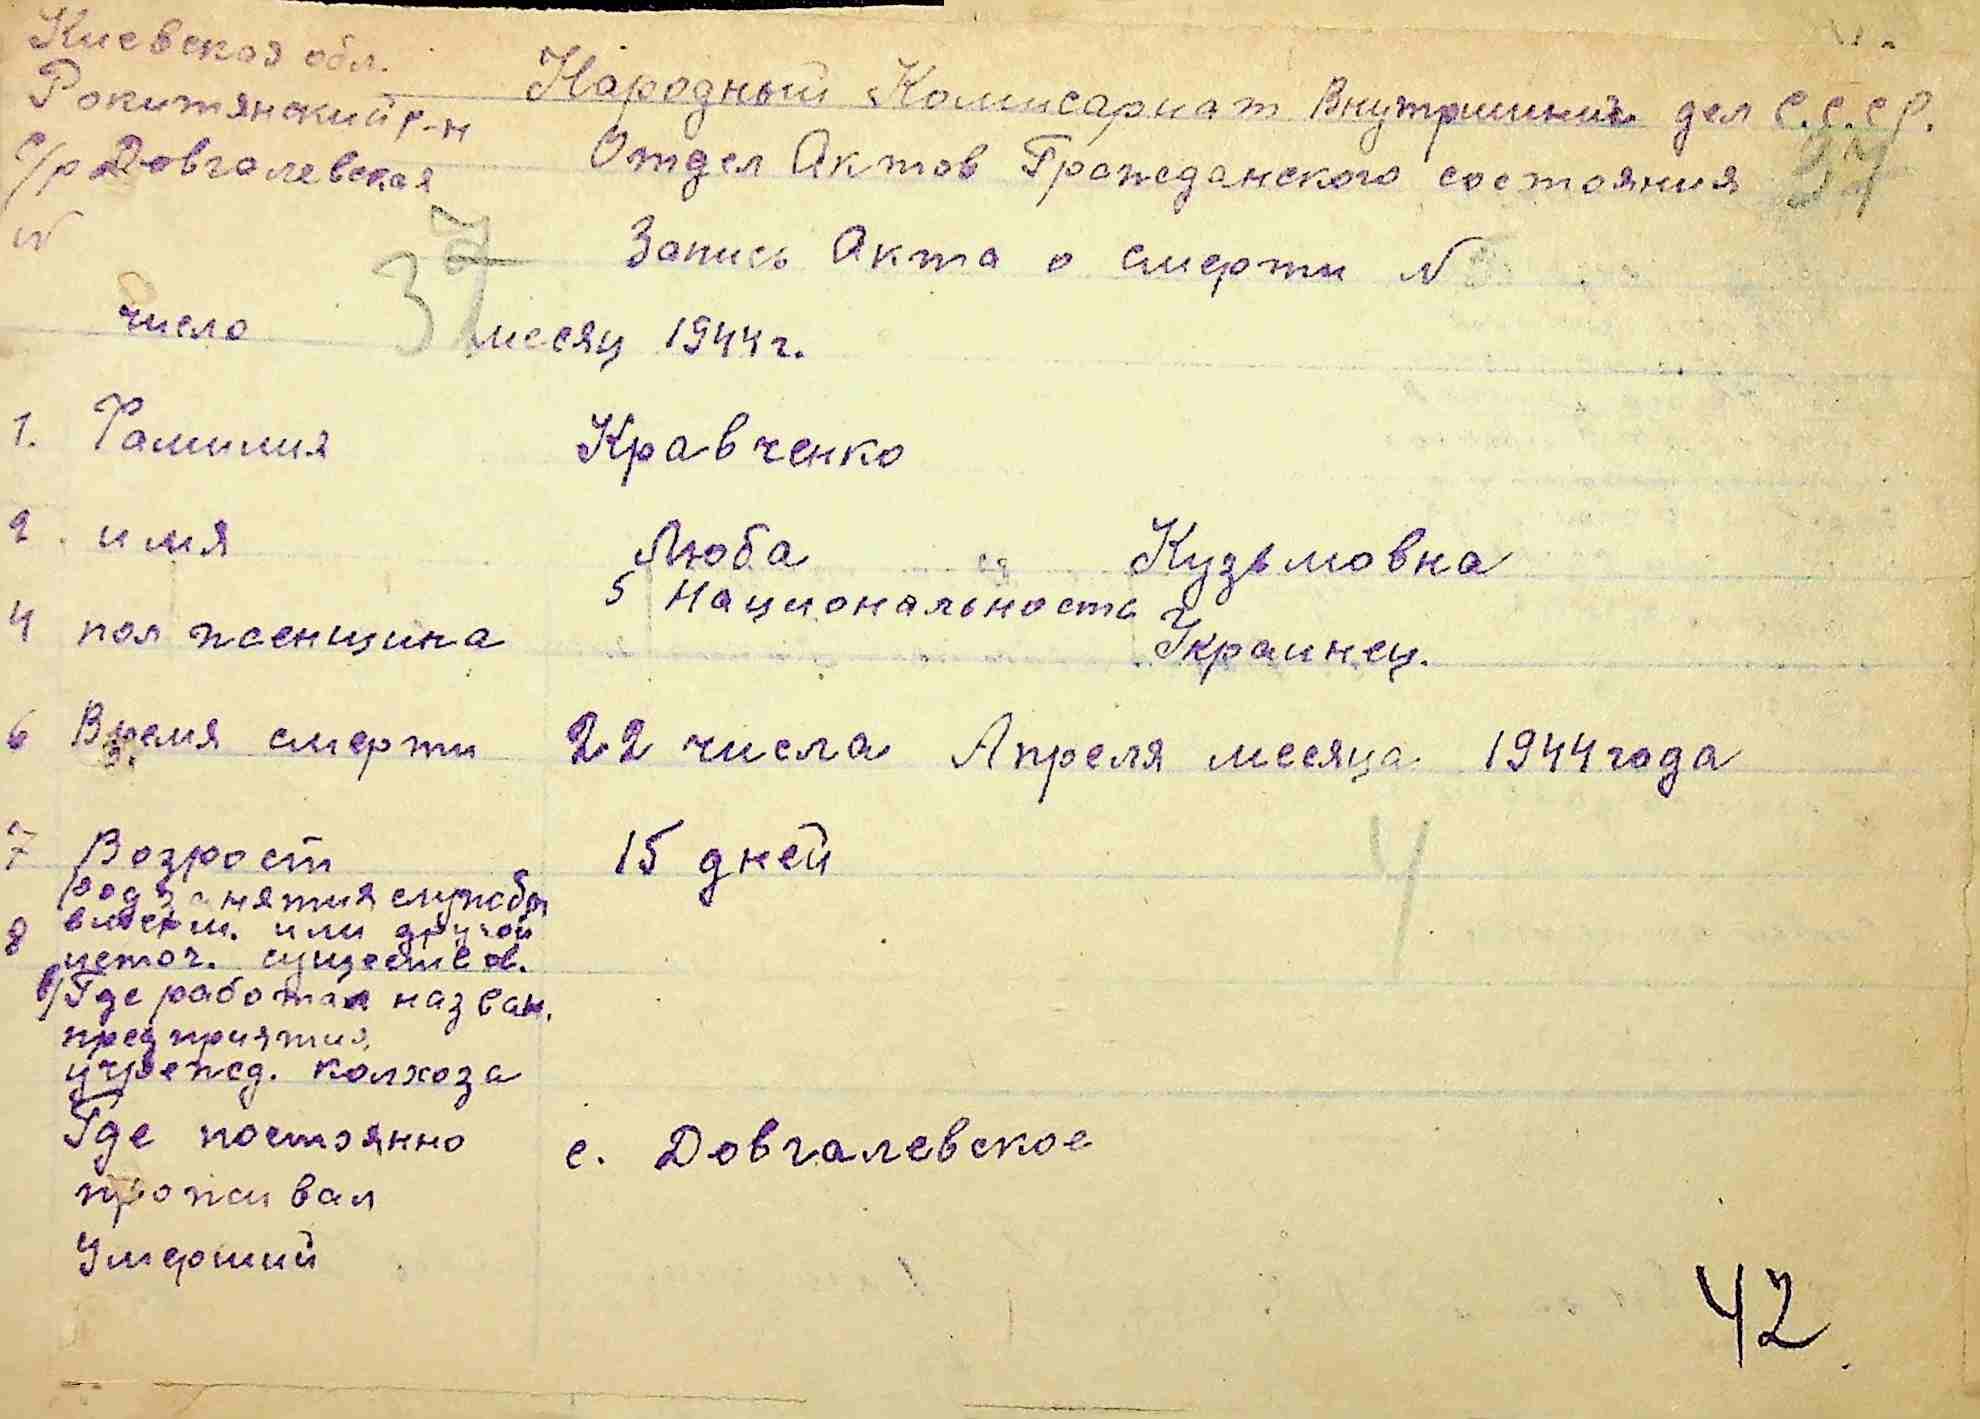 Киевская обл.
Рокитянский р-н
с/р Довгалевская
N
Народный Комисариат Внутришний дел С.С.С.Р.
Отдел Актов Гражданского состояния 37
Запись Акта о смерти N
число 37 месяц 1944 г.
1. Фамилия Кравченко
2. имя Люба Кузьмовна
4 пол женщина 5 Национальность Украинец.
6 Время смерти 22 числа Апреля месяца 1944 года
7 Возрост 15 дней
род занятия службы
8 или другой
источ. существов.
б/ Где работал назван.
предприятия
учрежд. колхоза
Где постоянно с. Довгалевское
проживал
Умерший
4
42